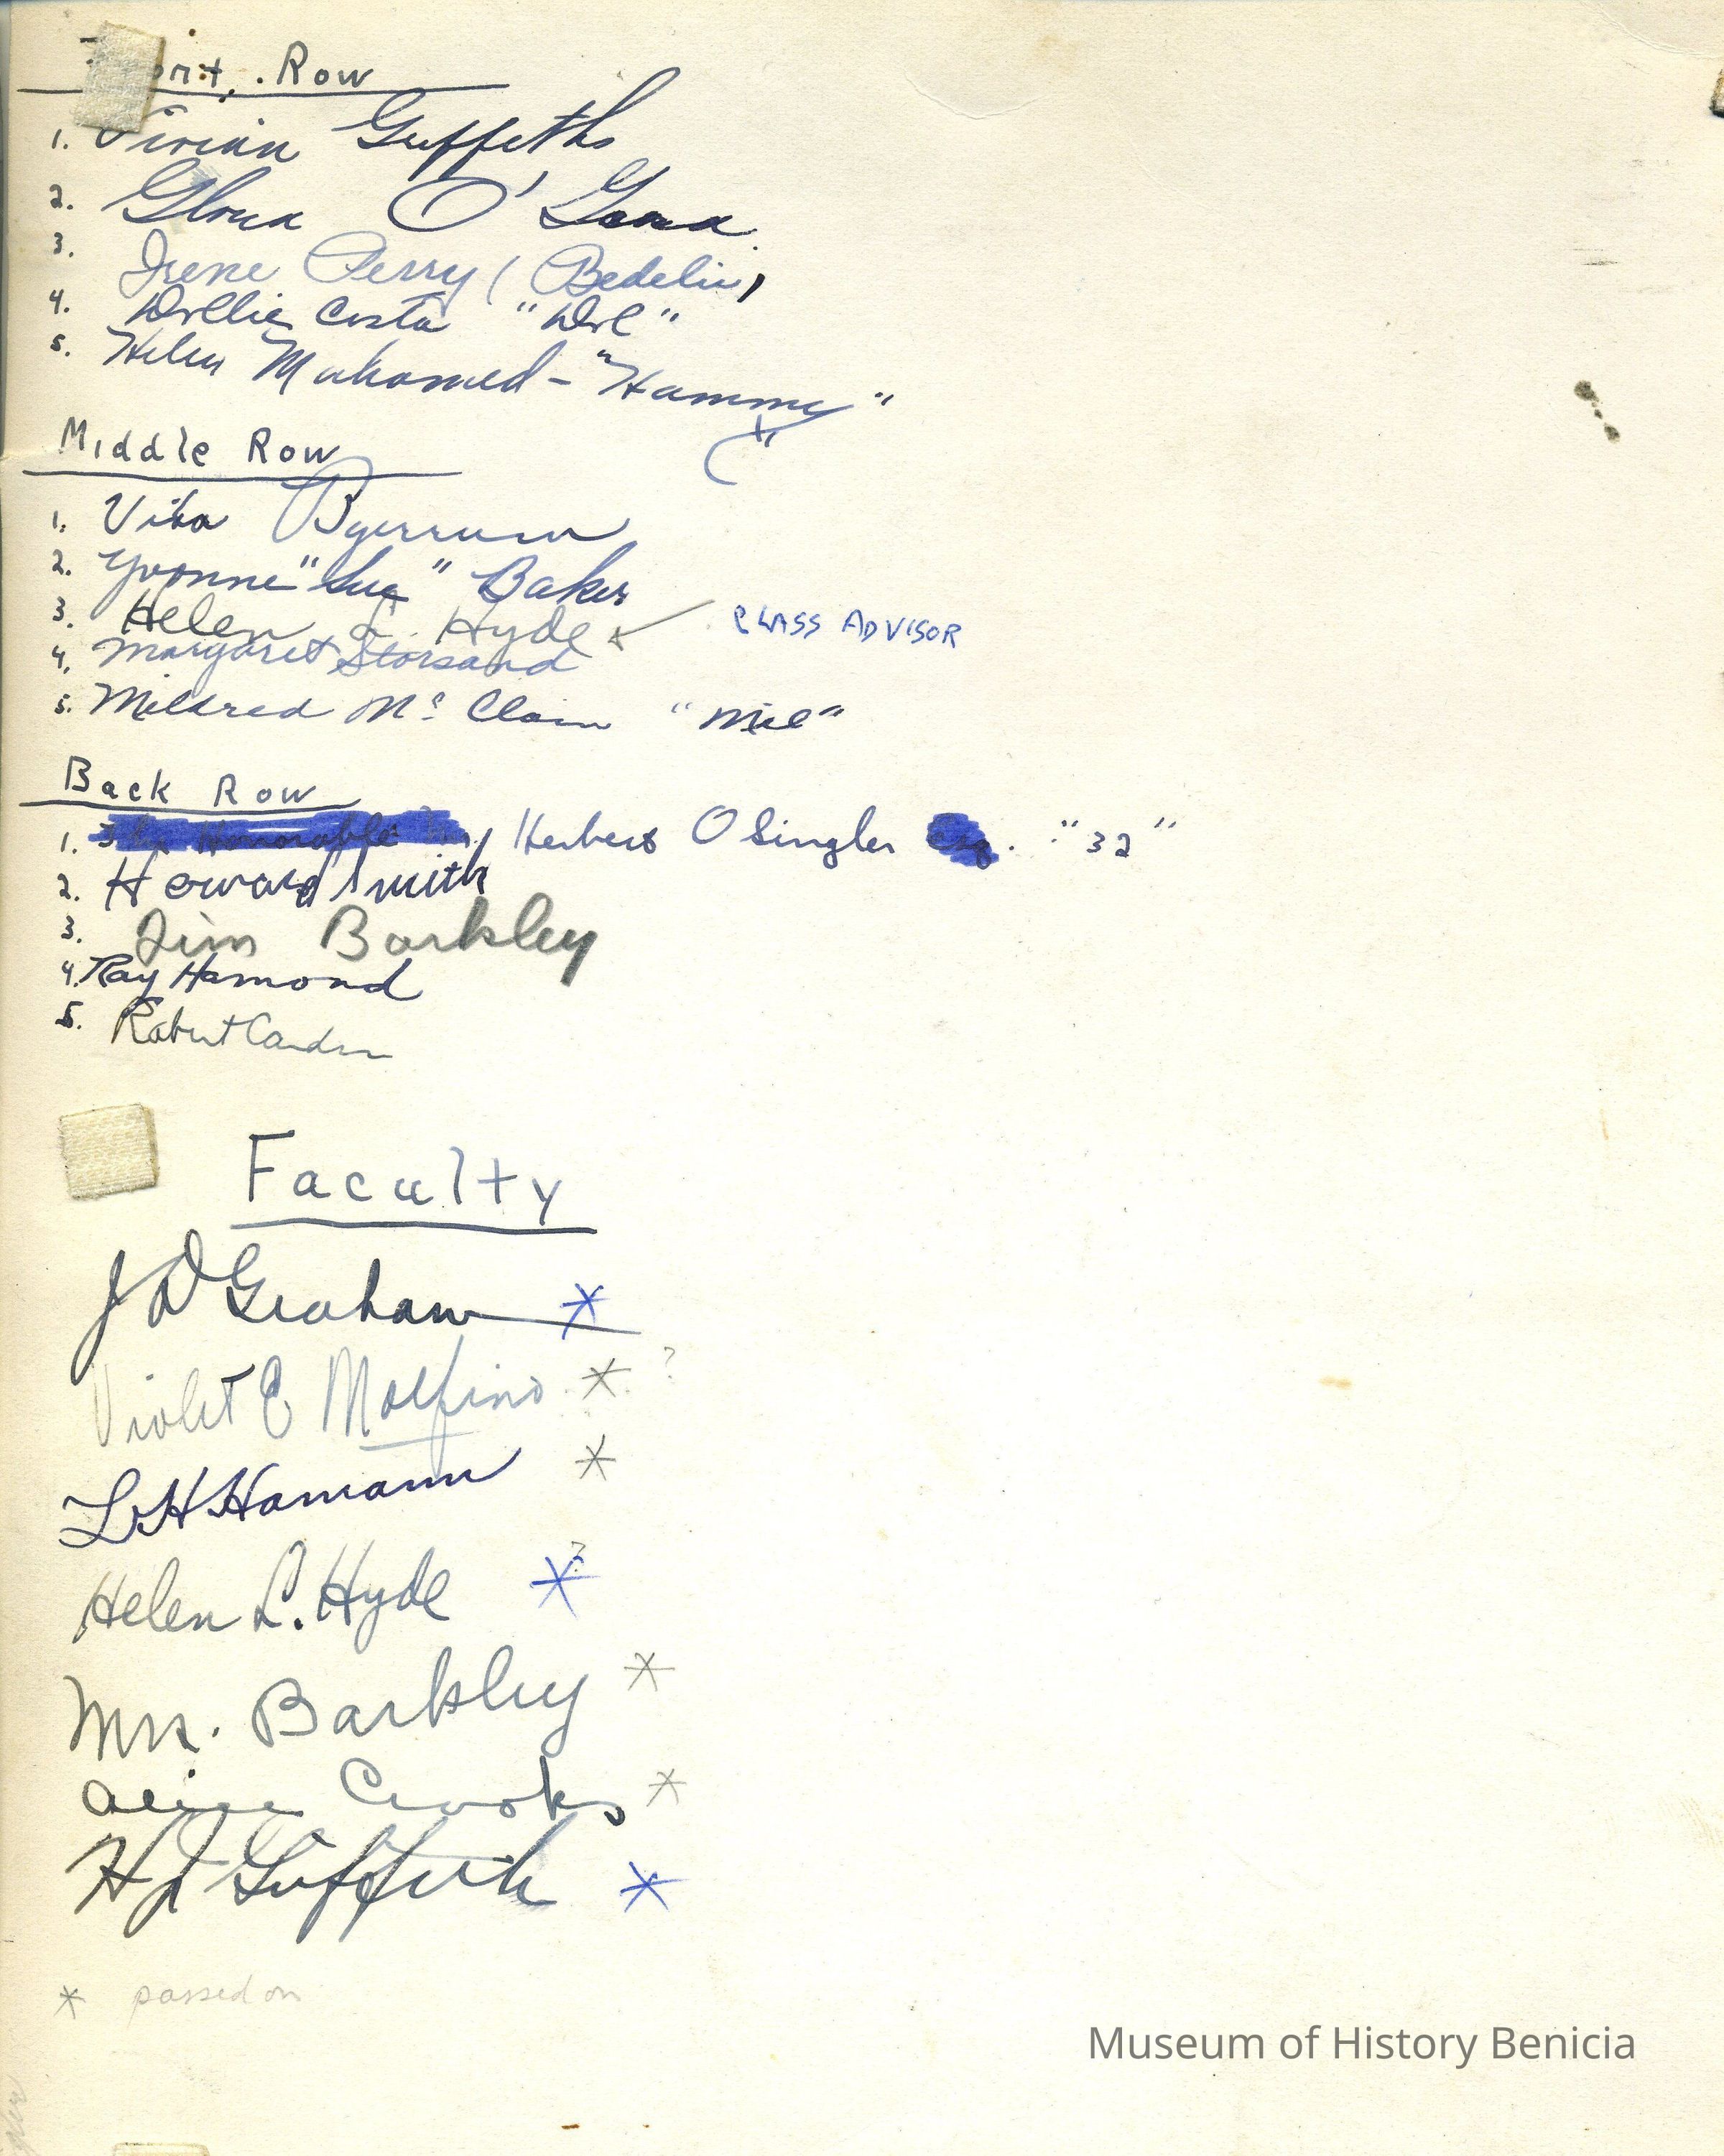 Front Row
1. Vivian Griffeths
2. Gloria O'Gara
3. Irene Perry (Bedelia)
4. Dollie Costa "Dol"
5. Helen Mahomed - "Hammy"
Middle Row
1. Viba Bjerrum
2. Yvonne "Sug" Baker
3. Helen L. Hyde CLASS ADVISOR
4. Margaret Storsand
5. Mildred Mc Clain "Mil"
Back Row
1. The Honorable Herbert O Singler Esq. "32"
2. Howard Smith
3. Jim Barkley
4. Ray Hamond
5. Robert Carden
Faculty
J D Graham *
Violet E Molfino * ?
L H Hamann *
Helen L. Hyde * ?
Mrs. Barkley *
Alice Crooks *
H J Griffith *
* passed on
Museum of History Benicia